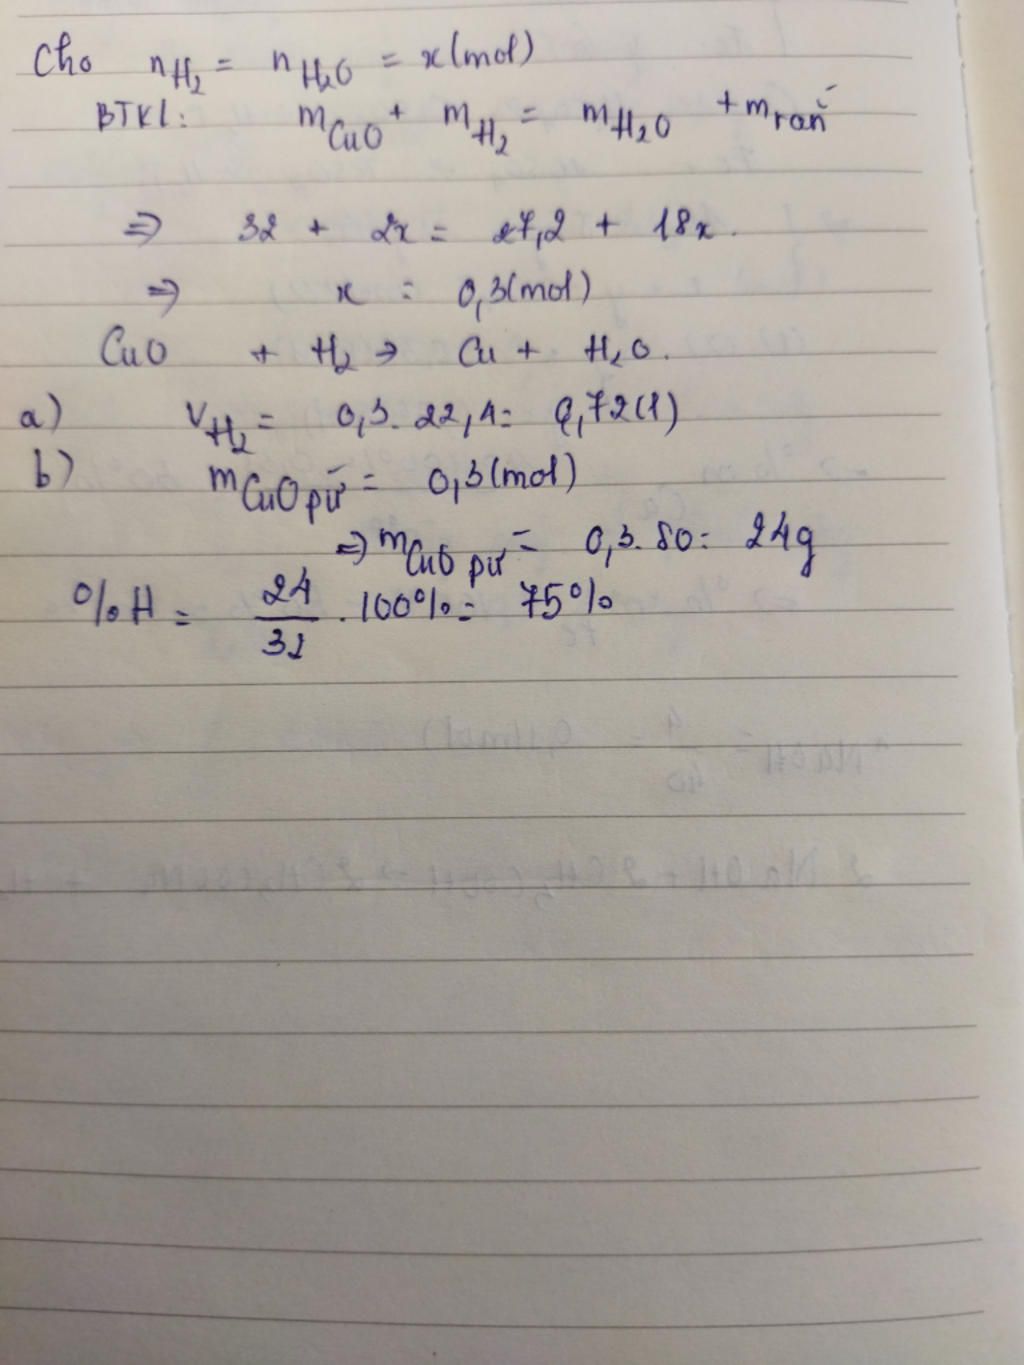 Cho nH₂ = nH₂O = x(mol)
BTKL: mCuO + mH₂ = mH₂O + mrắn
⇒ 32 + 2x = 27,2 + 18x.
⇒ x = 0,3(mol)
CuO + H₂ → Cu + H₂O.
a) VH₂ = 0,3. 22,4 = 6,72(l)
b) mCuO pứ = 0,3(mol)
⇒ mCuO pứ = 0,3. 80 = 24g
%H = 24/32 . 100% = 75%